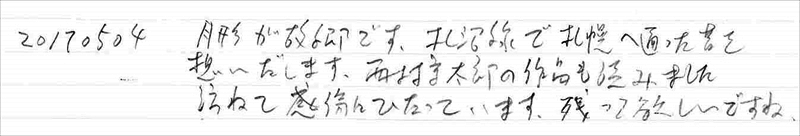 20170504 月形が故郷です、札沼線で札幌へ通った昔を
想いだします、西村京太郎の作品も読みました
訪ねて感傷にひたっています、残って欲しいですね、